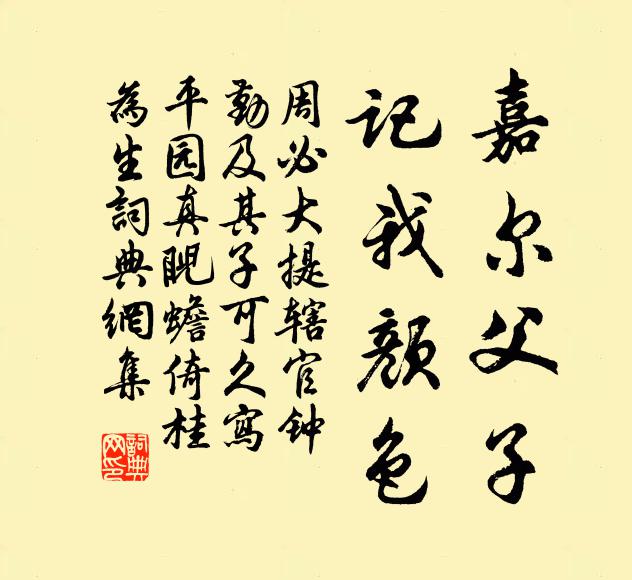 嘉尔父子
记我颜色
周必大提辖官钟
勤及其子可久寫
平园真覜蟾倚桂
為生詞典網集
詞典
网印